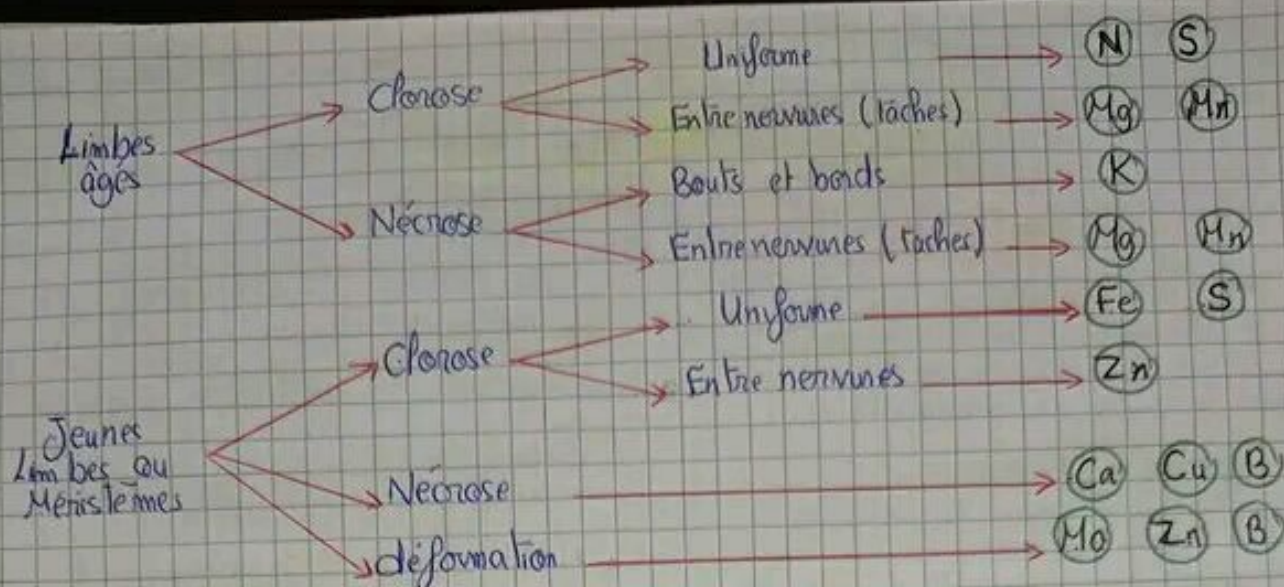 Limbes
âgés
Clorose
Uniforme
N S
Entre nervures (tâches)
Mg Mn
Nécrose
Bouts et bords
K
Entre nervures (taches)
Mg Mn
Jeunes
Limbes ou
Méristèmes
Clorose
Uniforme
Fe S
Entre nervures
Zn
Nécrose
Ca Cu B
déformation
Mo Zn B